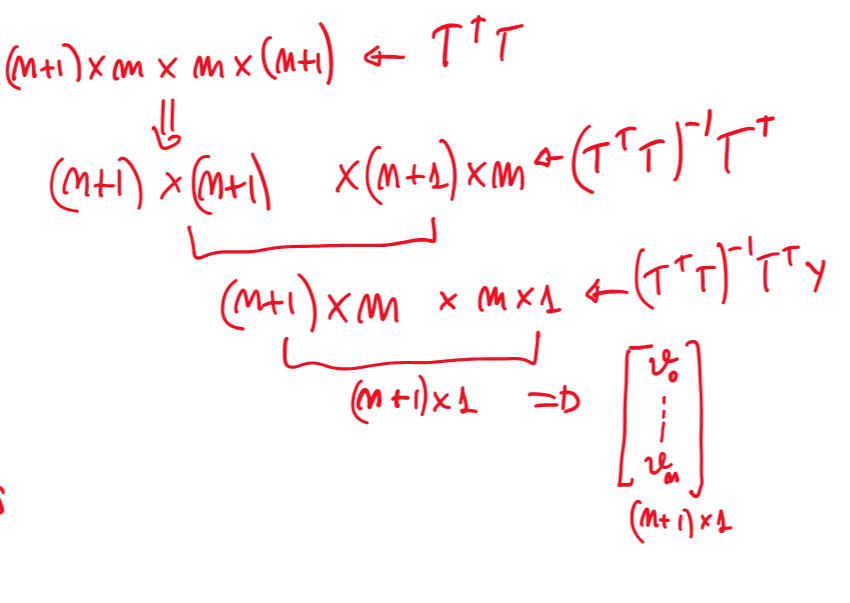 (n+1)×m × m×(n+1) ← TᵀT
⇓
(n+1)×(n+1) ×(n+1)×m ← (TᵀT)⁻¹Tᵀ
(n+1)×m × m×1 ← (TᵀT)⁻¹Tᵀy
(n+1)×1 ⇒ [v₀ ⋮ vₙ]
(n+1)×1